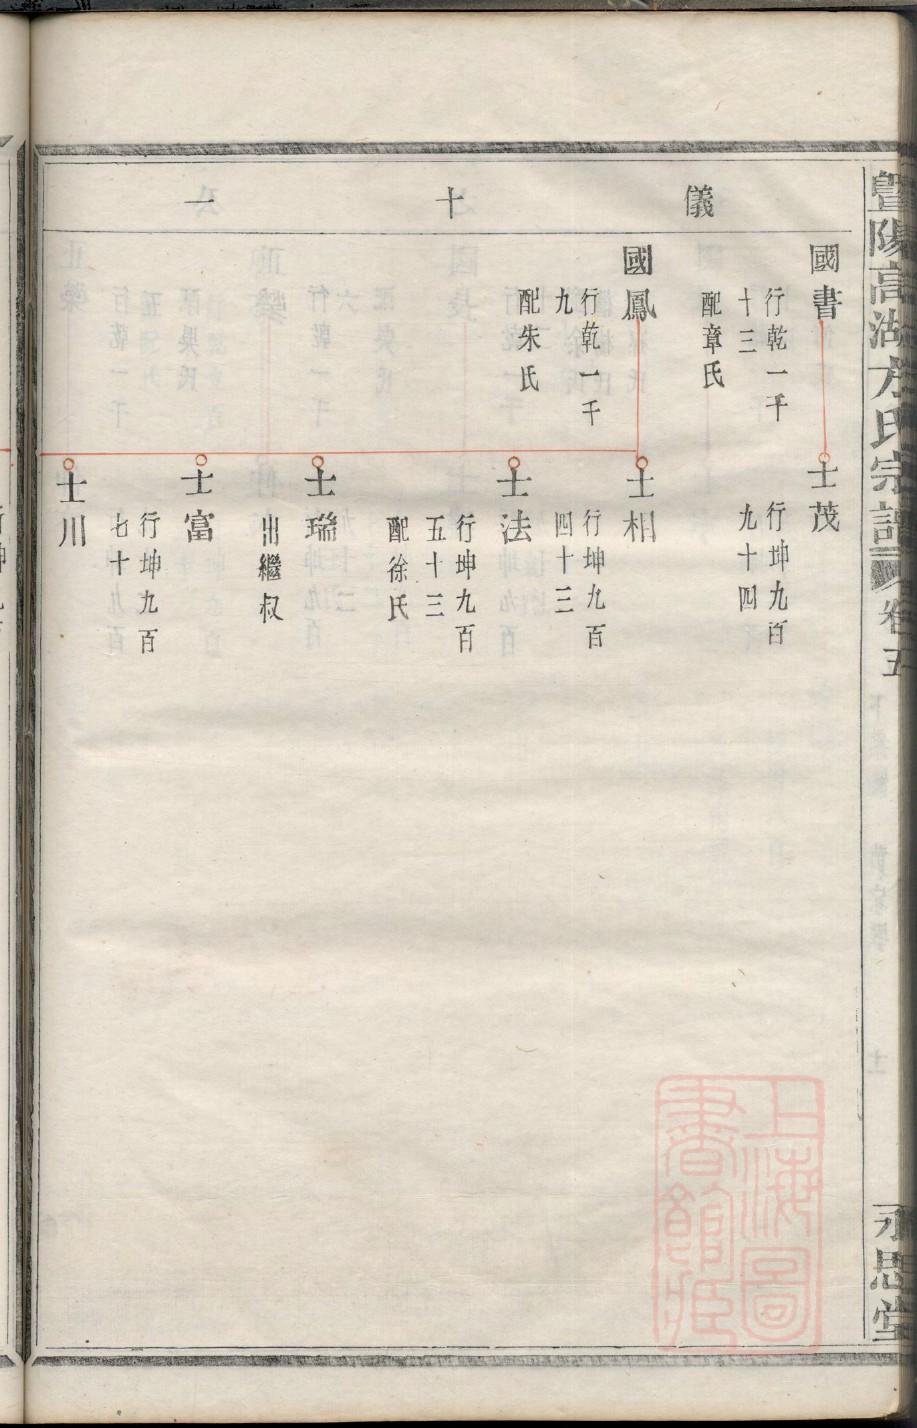 暨陽高湖方氏宗譜 卷五
永思堂
儀十一
國書
行乾一千
十三
配章氏
士茂
行坤九百
九十四
國鳳
行乾一千
九
配朱氏
士相
行坤九百
四十三
士法
行坤九百
五十三
配徐氏
士瑞
出繼叔
士富
行坤九百
七十
士川
上海圖
書館藏